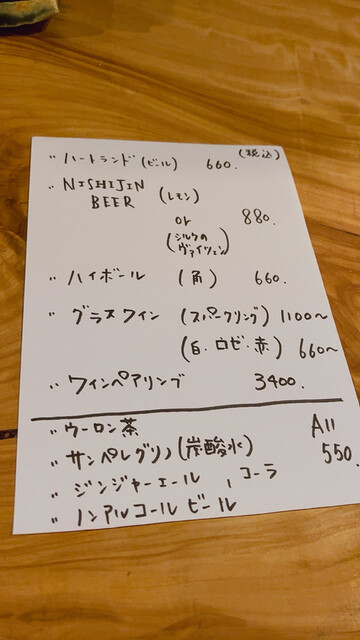 (税込)
〃 ハートランド (ビール) 660.
〃 NISHIJIN
BEER (レモン)
or 880.
(シルクの
ヴァイツェン)
〃 ハイボール (角) 660.
〃 グラスワイン (スパークリング) 1100〜
(白.ロゼ.赤) 660〜
〃 ワインペアリング 3400.
〃 ウーロン茶 All
〃 サンペレグリノ (炭酸水) 550.
〃 ジンジャーエール , コーラ
〃 ノンアルコールビール